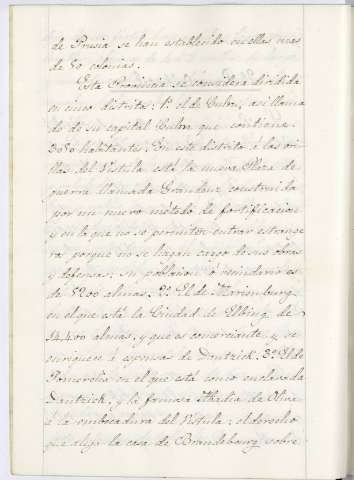 de Prusia se han establecido en ellas mas
de 50 colonias.
Esta Provincia se considera dividida
en cinco distritos: 1º el de Culm, asi llama
do de su capital Culm que contiene
3050 habitantes. En este distrito á las ori
llas del Vistula está la nueva Plaza de
guerra llamada Graudenz construida
por un nuevo método de fortificacion
y en la que no se permiten entrar estrange
ros porque no se hagan cargo de sus obras
y defensas; su poblacion ó vecindario es
de 5200 almas. 2º El de Mariemburg
en el que está la Ciudad de Elbing de
14.400 almas, y que es comerciante y se
enriquece á espensas de Dantzick. 3º El de
Pomerelia en el que está como enclavada
Dantzick, y la famosa Abadia de Oliva
á la embocadura del Vistula; el derecho
que alega la casa de Brandebourg sobre